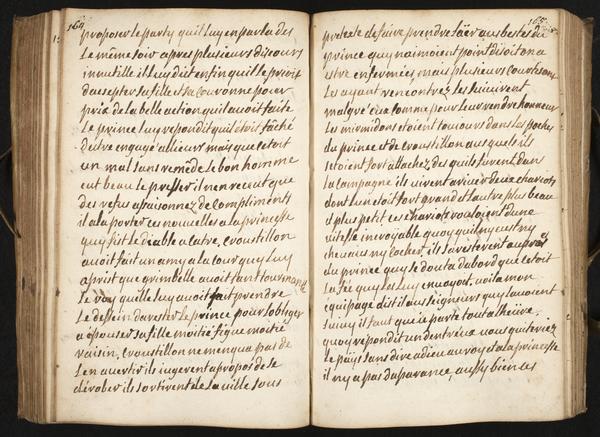 164
proposer le party quil luy en parla des
Le même soir apres plusieurs discours
innutille il luy dit enfin quil le prioit
daccepter sa fille et sa couronne pour
prix de la belle action quil auoit faite
Le prince luy repondit quil étoit fâché
dêtre engagé allieurs mais que cetoit
un mal sans remede le bon homme
eut beau le presser il nen receut que
des refus assaisonnez de compliments
il ala porter ces nouuelles a la princesse
quy fist le diable a catre, croustillon
auoit fait un amy a la cour quy luy
aprist que grimbelle auoit tant tourmanté
Le roy quelle luy auoit fait prendre
Le dessein darester le prince pour lobliger
a épouser sa fille moitié figue moitié
raisin, croustillon ne menqua pas de
len auertir ils iugerent apropos de se
dérober ils sortirent de la uille sous
165
pretexte de faire prendre laër aus bestes du
prince quy naimoient point disoit on a
estre enfermées, mais plusieurs courtesans
les ayant rencontrez les suiuirent
malgré eux comme pour leur rendre honneur
Les mirmidons etoient toujours dans les poches
du prince et de croustillon ausquels ils
setoient fort attachez des quils furent dans
la campagne ils uirent ariuer deux chariots
dont lun étoit fort grand et lautre plus beau
et plus petit ces chariots rouloient dune
uitesse incroyable quoy quil ny eust ny
cheuaus ny cocher, ils saresterent aupres
du prince quy se douta dabord que cetoit
La fée quy les luy enuoyoit, uoila mon
équipage dit il aus seigneurs quy lauoient
suiuy il faut que ie parte tout alheure,
quoy repondit un dentreux uous quiteriez
Le païs sans dire adieu au roy et a la princesse
il ny a pas daparance, aussy bien ces